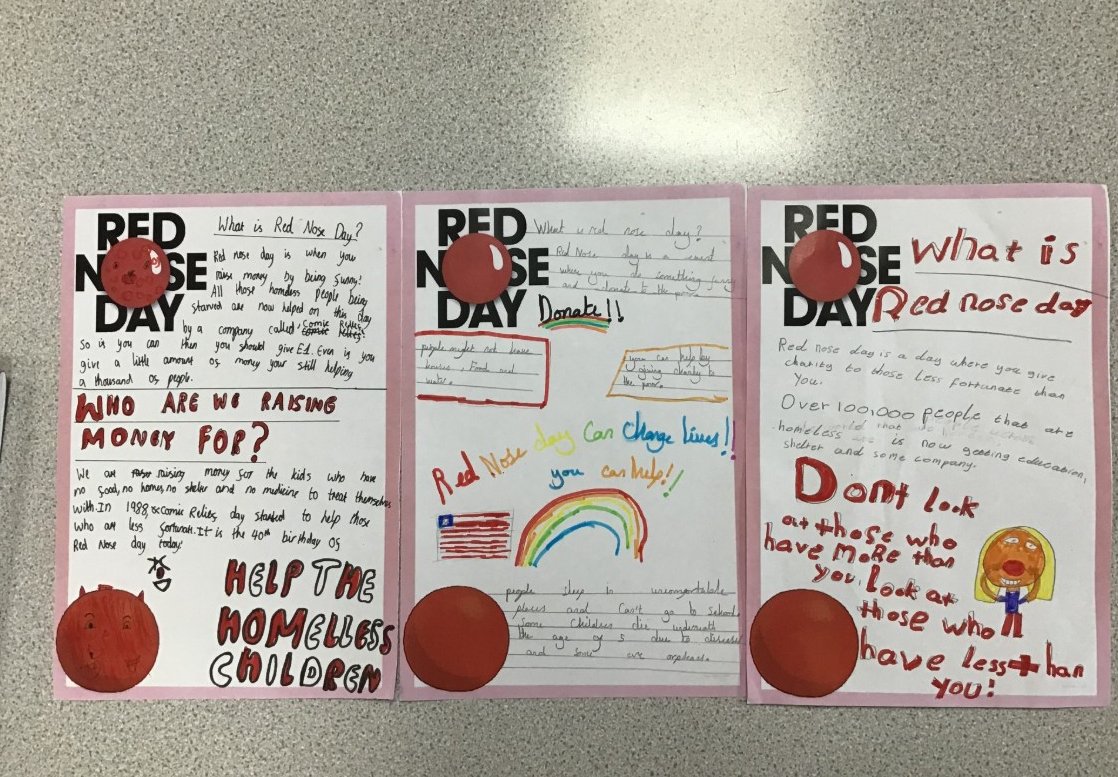 RED
NOSE
DAY
What is Red Nose Day?
Red nose day is when you
raise money by being funny!
All those homeless people being
starved are now helped on this day
by a company called, Comic Relief.
So if you can then you should give £1. Even if you
give a little amount of money your still helping
a thousand of people.
WHO ARE WE RAISING
MONEY FOR?
We are raising money for the kids who have
no food, no homes, no shelter and no medicine to treat themselves
with. In 1988, Comic Relief day started to help those
who are less fortunate. It is the 40th birthday of
Red Nose day today!
HELP THE
HOMELLESS
CHILDREN
RED
NOSE
DAY
What is red nose day?
Red Nose day is a event
where you do something funny
and donate to the poor.
Donate!!
people might not have
houses, food and
water.
you can help by
giving charity to
the poor.
Red Nose day Can Change lives!!
you can help!!
people sleep in uncomfortable
places and Can't go to school
some children die underneath
the age of 5 due to disease
and some are orphans.
RED
NOSE
DAY
What is
Red nose day
Red nose day is a day where you give
charity to those less fortunate than
you.
Over 100,000 people that are
homeless is now getting education,
shelter and some company.
Dont look
at those who
have more than
you, look at
those who
have less than
you!